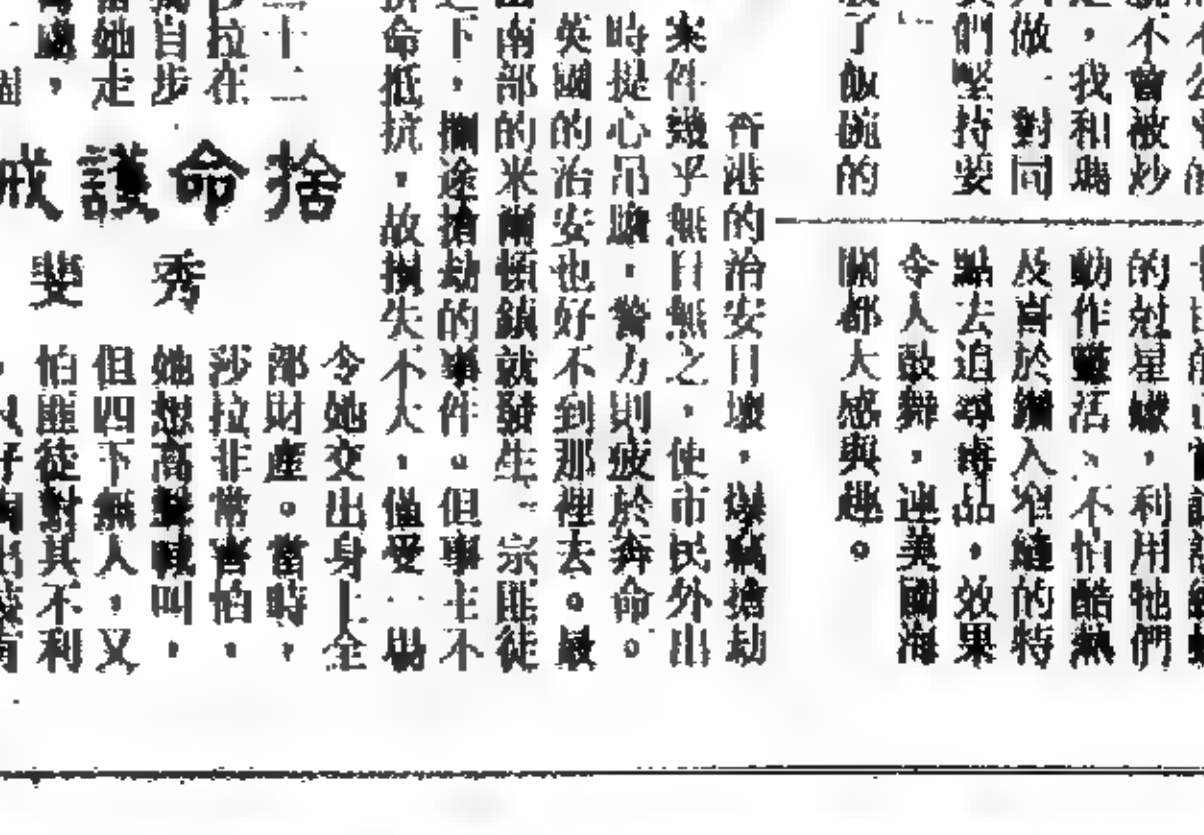 不公平的
就不會被炒
，我和瑪
做 對同
們堅持要
了飯碗的
的剋星蠊，利用牠們
動作靈活、不怕酷熱
及喜於鑽入窄縫的特
點去追尋毒品，效果
令人鼓舞，連美國海
關都大感興趣。
捨命護戒
秀斐
香港的治安日壞，爆竊搶劫
案件幾乎無日無之，使市民外出
時提心吊膽，警力則疲於奔命。
英國的治安也好不到那裡去。最
南部的米爾頓鎮就發生一宗匪徒
下，攔途搶劫的事件。但事主不
命抵抗，故損失不大，僅受一場
十二
沙拉在
獨自步
她走
，
令她交出身上全
部財產。當時，
沙拉非常害怕，
她想高聲喊叫，
但四下無人，又
怕匪徒對其不利